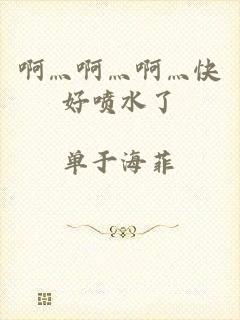 啊灬啊灬啊灬快
好喷水了
单于海菲